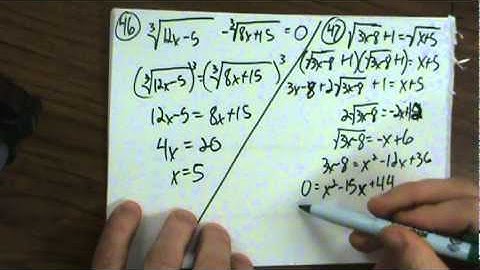 46 ∛(12x-5) - ∛(8x+15) = 0
(∛(12x-5))³ = (∛(8x+15))³
12x-5 = 8x+15
4x = 20
x = 5
47 √(3x-8) + 1 = √(x+5)
(√(3x-8) + 1)(√(3x-8) + 1) = x+5
3x-8+2√(3x-8) + 1 = x+5
2√(3x-8) = -2x+12
√(3x-8) = -x+6
3x-8 = x²-12x+36
0 = x²-15x+44